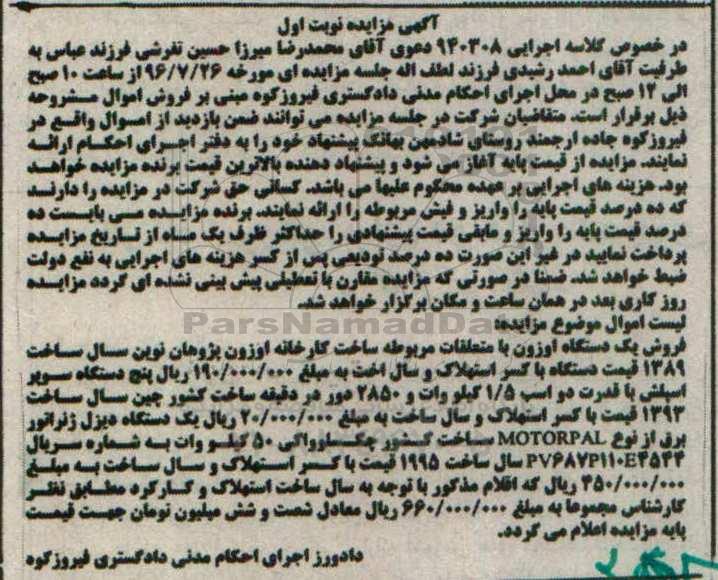 آگهی مزایده نوبت اول
در خصوص کلاسه اجرایی ۹۴۰۳۰۸ دعوی آقای محمدرضا میرزا حسین تفرشی فرزند عباس به
طرفیت آقای احمد رشیدی فرزند لطف اله جلسه مزایده ای مورخه ۹۶/۷/۲۶ از ساعت ۱۰ صبح
الی ۱۲ صبح در محل اجرای احکام مدنی دادگستری فیروزکوه مبنی بر فروش اموال مشروحه
ذیل برقرار است. متقاضیان شرکت در جلسه مزایده می توانند ضمن بازدید از اموال واقع در
فیروزکوه جاده ارجمند روستای شادمهن بهانک پیشنهاد خود را به دفتر اجرای احکام ارائه
نمایند. مزایده از قیمت پایه آغاز می شود و پیشنهاد دهنده بالاترین قیمت برنده مزایده خواهد
بود. هزینه های اجرایی بر عهده محکوم علیها می باشد. کسانی حق شرکت در مزایده را دارند
که ده درصد قیمت پایه را واریز و فیش مربوطه را ارائه نمایند. برنده مزایده می بایست ده
درصد قیمت پایه را واریز و مابقی قیمت پیشنهادی را حداکثر ظرف یک ماه از تاریخ مزایده
پرداخت نمایید در غیر این صورت ده درصد تودیعی پس از کسر هزینه های اجرایی به نفع دولت
ضبط خواهد شد. ضمنا در صورتی که مزایده مقارن با تعطیلی پیش بینی نشده ای گردد مزایده
روز کاری بعد در همان ساعت و مکان برگزار خواهد شد.
ParsNamadData
لیست اموال موضوع مزایده:
فروش یک دستگاه اوزون با متعلقات مربوطه ساخت کارخانه اوزون پژوهان نوین سال ساخت
۱۳۸۹ قیمت دستگاه با کسر استهلاک و سال اخت به مبلغ ۱۹۰/۰۰۰/۰۰۰ ریال پنج دستگاه سوپر
اسپلش با قدرت دو اسب ۱/۵ کیلو وات و ۲۸۵۰ دور در دقیقه ساخت کشور چین سال ساخت
۱۳۹۳ قیمت با کسر استهلاک و سال ساخت به مبلغ ۲۰/۰۰۰/۰۰۰ ریال یک دستگاه دیزل ژنراتور
برق از نوع MOTORPAL ساخت کشور چکسلوواکی ۵۰ کیلو وات به شماره سریال
PV۶۸۷P۱۱۰E۴۵۴۴ سال ساخت ۱۹۹۵ قیمت با کسر استهلاک و سال ساخت به مبلغ
۴۵۰/۰۰۰/۰۰۰ ریال که اقلام مذکور با توجه به سال ساخت استهلاک و کارکرد مطابق نظر
کارشناس مجموعا به مبلغ ۶۶۰/۰۰۰/۰۰۰ ریال معادل شصت و شش میلیون تومان جهت قیمت
پایه مزایده اعلام می گردد.
دادورز اجرای احکام مدنی دادگستری فیروزکوه